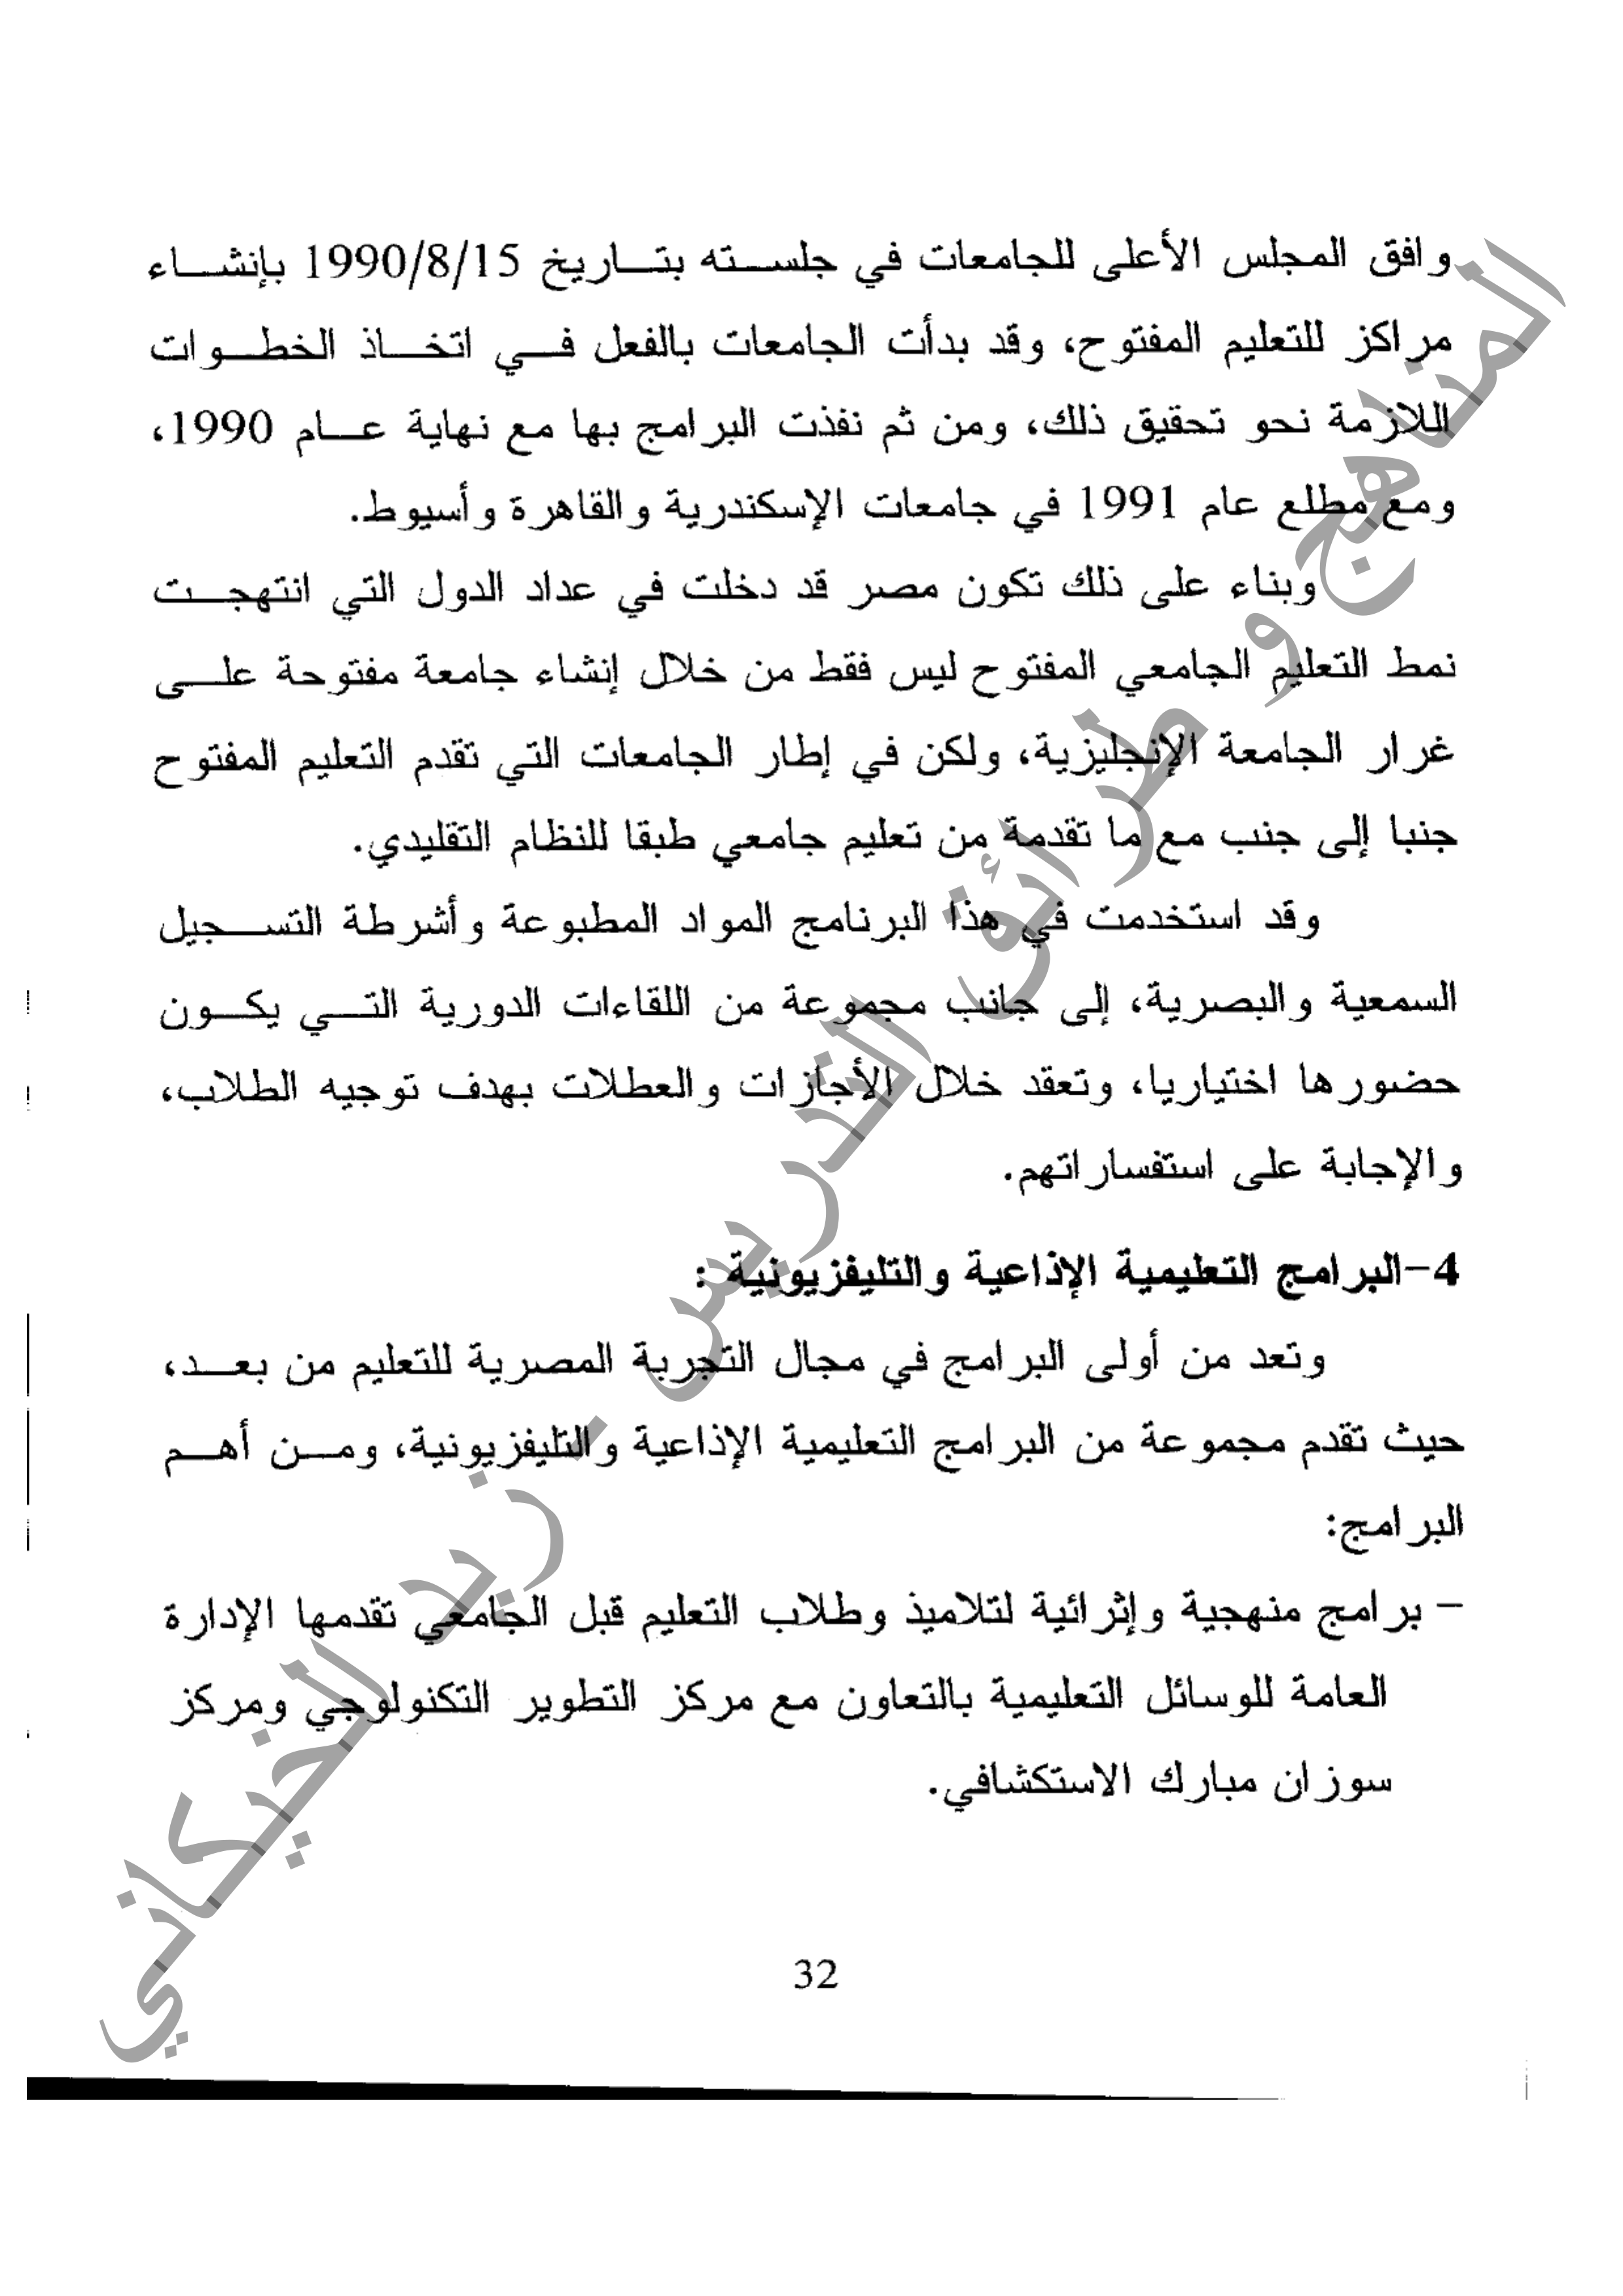 وافق المجلس الأعلى للجامعات في جلسته بتاريخ 1990/8/15 بإنشاء
مراكز للتعليم المفتوح، وقد بدأت الجامعات بالفعل في اتخاذ الخطوات
اللازمة نحو تحقيق ذلك، ومن ثم نفذت البرامج بها مع نهاية عام 1990،
ومع مطلع عام 1991 في جامعات الإسكندرية والقاهرة وأسيوط.
وبناء على ذلك تكون مصر قد دخلت في عداد الدول التي انتهجت
نمط التعليم الجامعي المفتوح ليس فقط من خلال إنشاء جامعة مفتوحة على
غرار الجامعة الإنجليزية، ولكن في إطار الجامعات التي تقدم التعليم المفتوح
جنبا إلى جنب مع ما تقدمة من تعليم جامعي طبقا للنظام التقليدي.
وقد استخدمت في هذا البرنامج المواد المطبوعة وأشرطة التسجيل
السمعية والبصرية، إلى جانب مجموعة من اللقاءات الدورية التي يكون
حضورها اختياريا، وتعقد خلال الأجازات والعطلات بهدف توجيه الطلاب،
والإجابة على استفساراتهم.
4-البرامج التعليمية الإذاعية والتليفزيونية :
وتعد من أولى البرامج في مجال التجربة المصرية للتعليم من بعد،
حيث تقدم مجموعة من البرامج التعليمية الإذاعية والتليفزيونية، ومن أهم
البرامج:
- برامج منهجية وإثرائية لتلاميذ وطلاب التعليم قبل الجامعي تقدمها الإدارة
العامة للوسائل التعليمية بالتعاون مع مركز التطوير التكنولوجي ومركز
سوزان مبارك الاستكشافي.
32
المناهج وطرائق التدريس - زيد الخيكاني